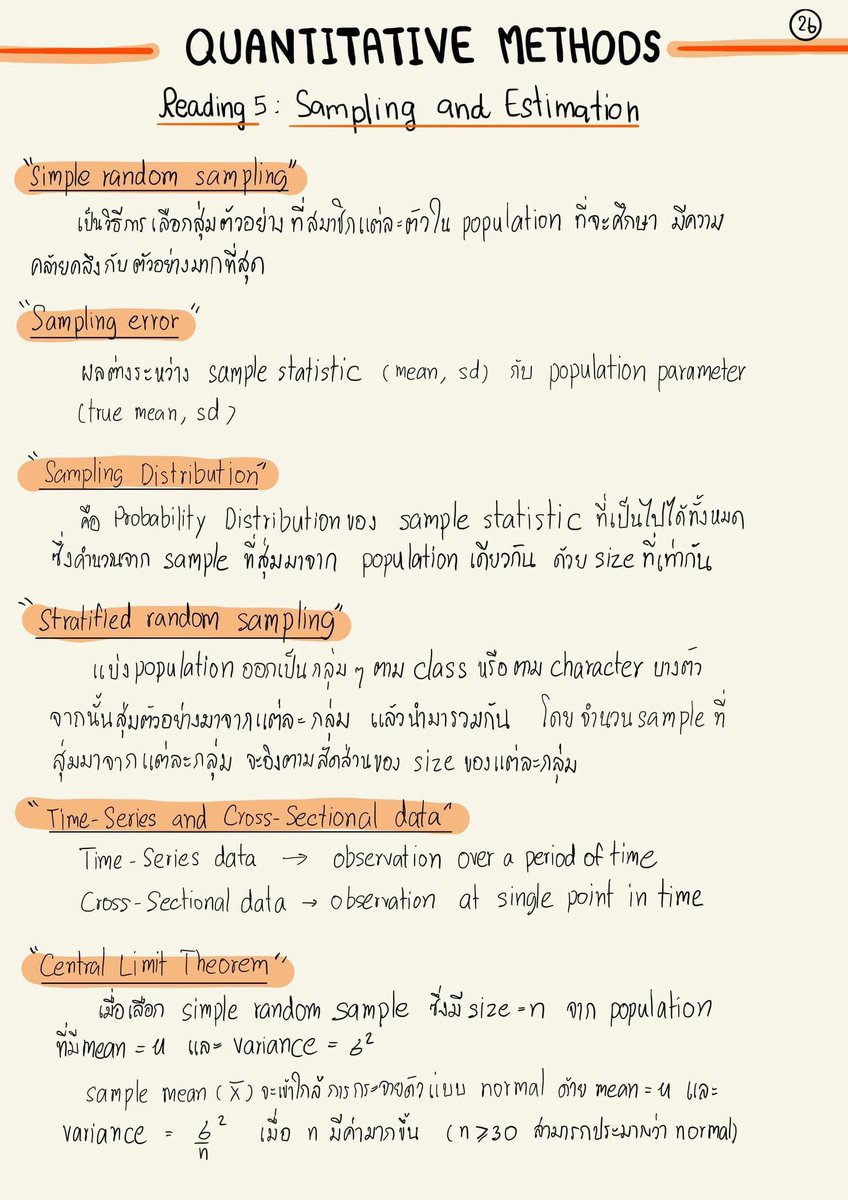 26
QUANTITATIVE METHODS
Reading 5 : Sampling and Estimation
"Simple random sampling"
เป็นวิธีการ เลือกสุ่มตัวอย่าง ที่สมาชิกแต่ละตัวใน population ที่จะศึกษา มีความ
คล้ายคลึงกับ ตัวอย่างมากที่สุด
"Sampling error"
ผลต่างระหว่าง sample statistic (mean, sd) กับ population parameter
(true mean, sd)
"Sampling Distribution"
คือ Probability Distribution ของ sample statistic ที่เป็นไปได้ทั้งหมด
ซึ่งคำนวนจาก sample ที่สุ่มมาจาก population เดียวกัน ด้วย size ที่เท่ากัน
"Stratified random sampling"
แบ่ง population ออกเป็นกลุ่ม ๆ ตาม class หรือ ตาม character บางตัว
จากนั้นสุ่มตัวอย่างมาจากแต่ละกลุ่ม แล้วนำมารวมกัน โดย จำนวน sample ที่
สุ่มมาจากแต่ละกลุ่ม จะอิงตามสัดส่วนของ size ของแต่ละกลุ่ม
"Time-Series and Cross-Sectional data"
Time-Series data → observation over a period of time
Cross-Sectional data → observation at single point in time
"Central Limit Theorem"
เมื่อเลือก simple random sample ซึ่งมี size = n จาก population
ที่มี mean = u และ variance = σ²
sample mean (x̄) จะเข้าใกล้ การกระจายตัว แบบ normal ด้วย mean = u และ
variance = σ²/n เมื่อ n มีค่ามากขึ้น (n ≥ 30 สามารถประมาณว่า normal)